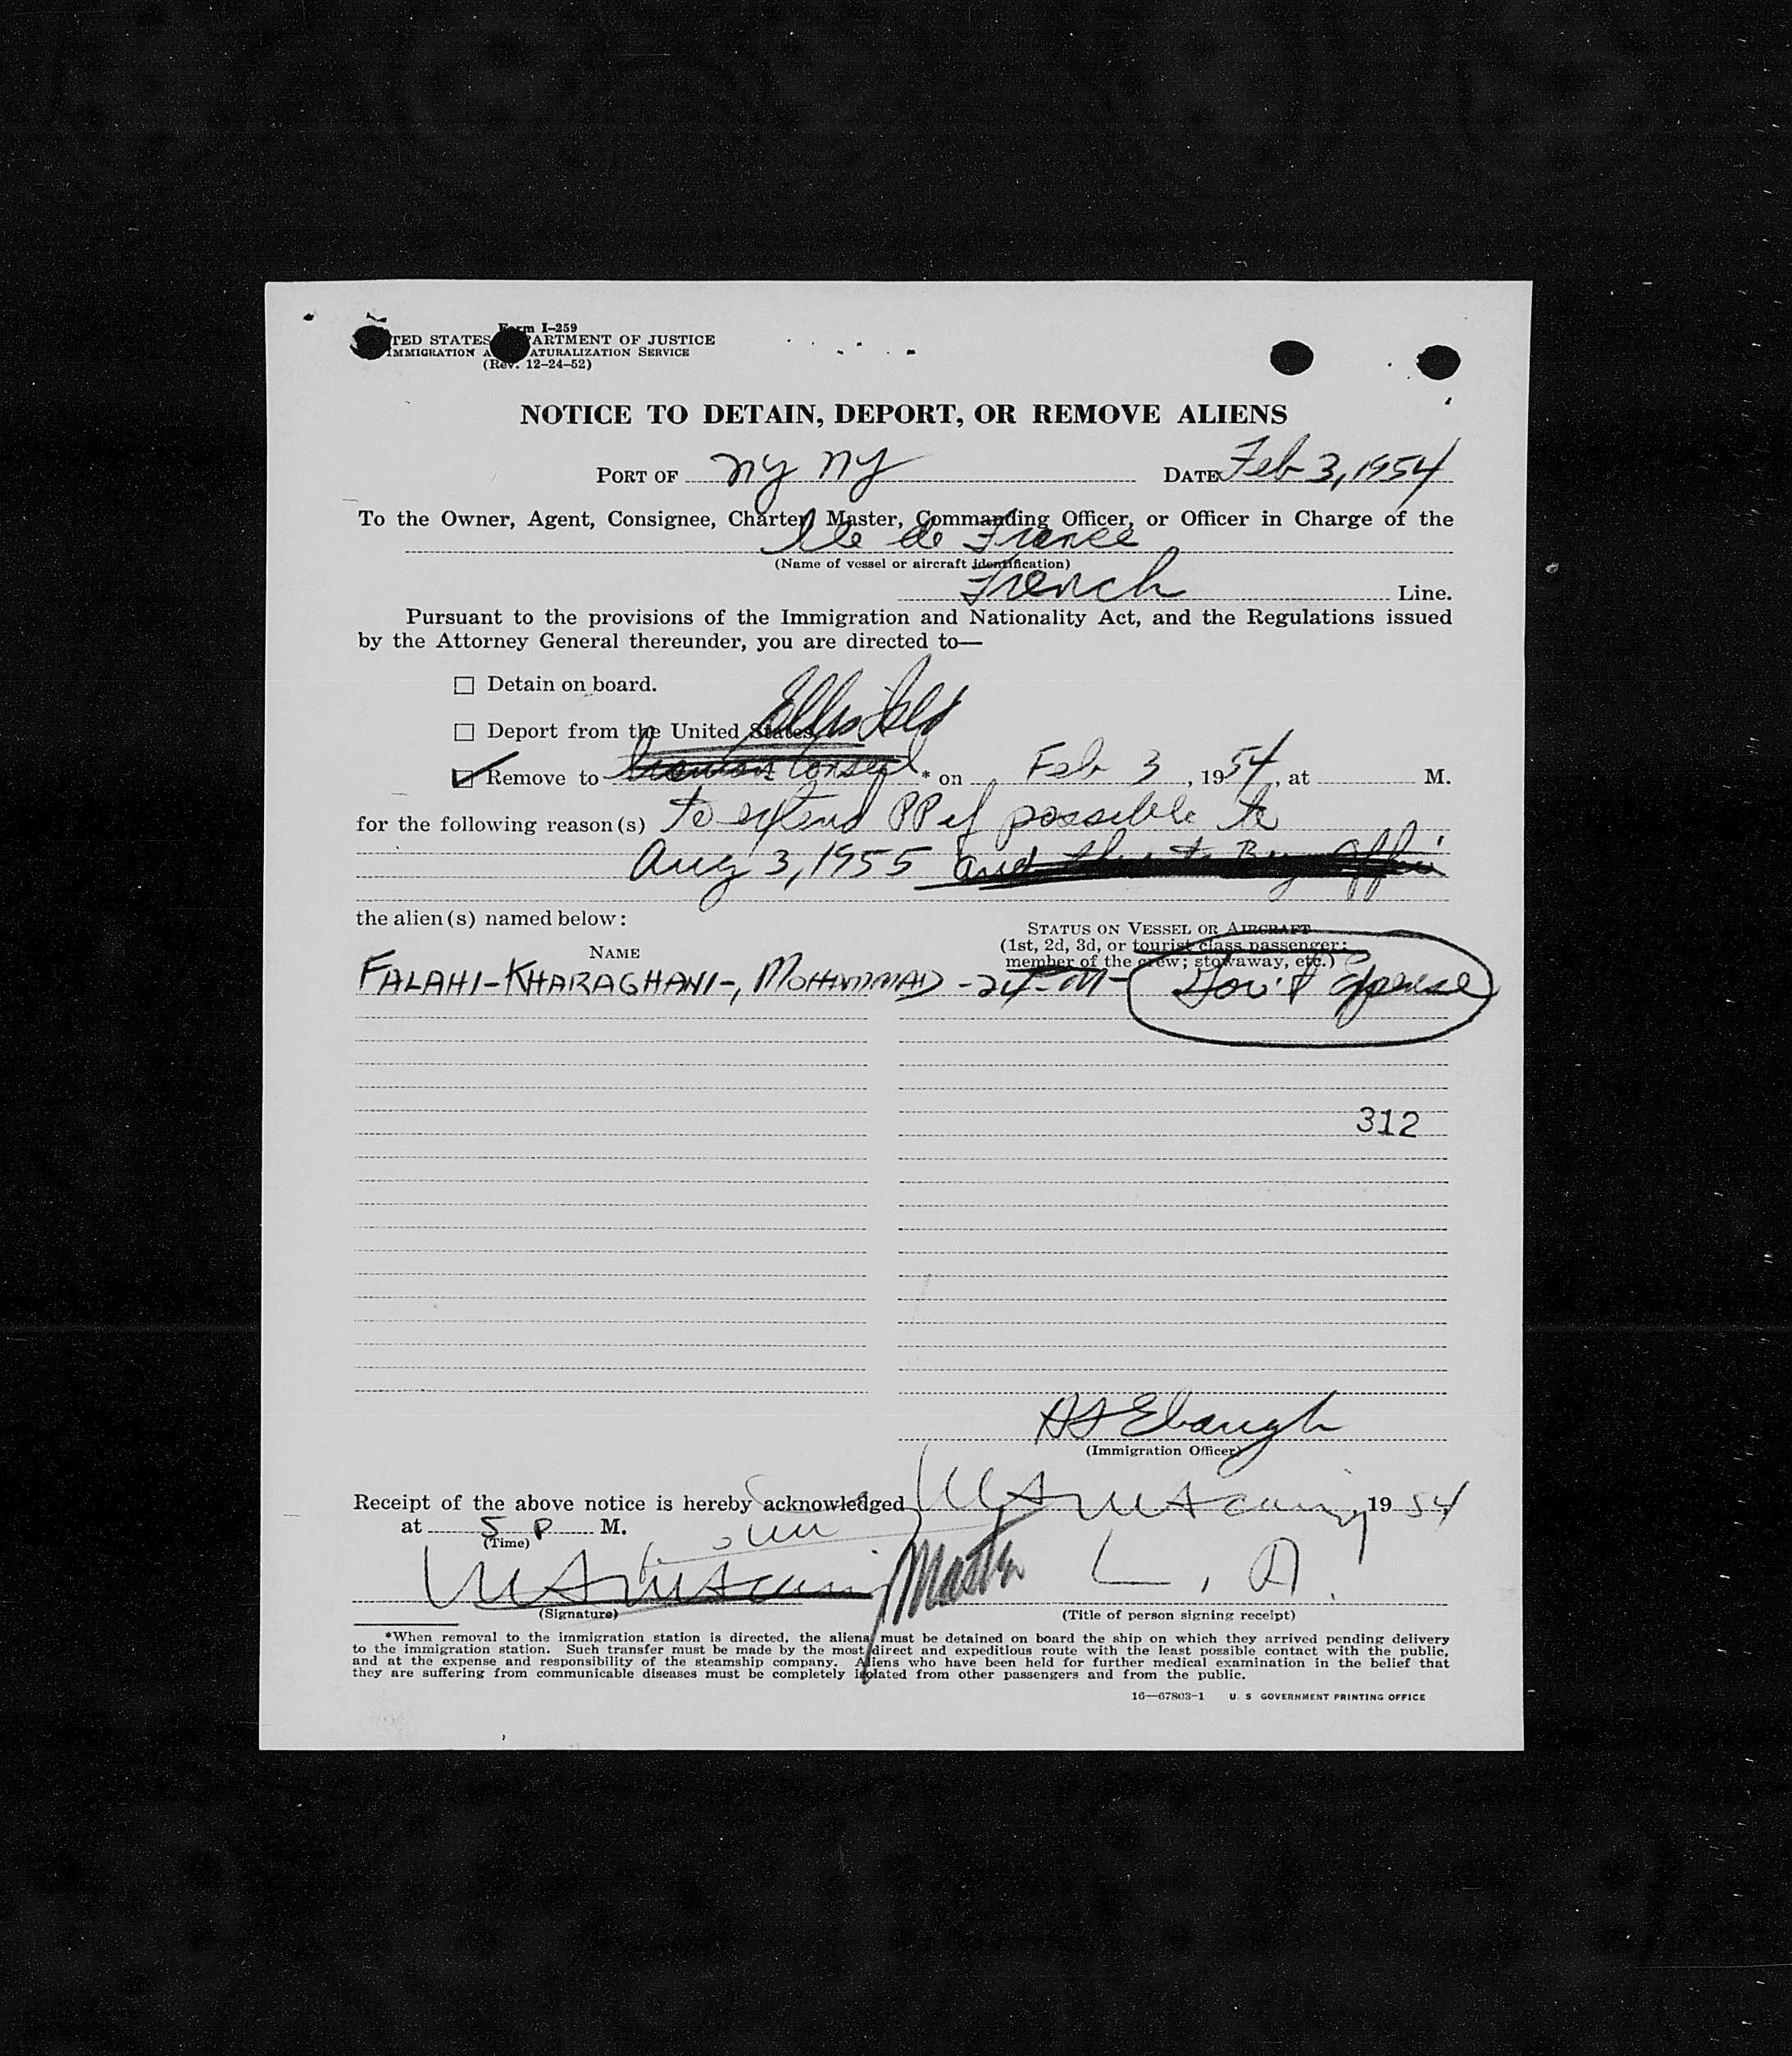 Form I–259
TED STATES ARTMENT OF JUSTICE
IMMIGRATION A ATURALIZATION SERVICE
(Rev. 12–24–52)
NOTICE TO DETAIN, DEPORT, OR REMOVE ALIENS
PORT OF NY NY DATE Feb 3, 1954
To the Owner, Agent, Consignee, Charter, Master, Commanding Officer, or Officer in Charge of the
Ile de France
(Name of vessel or aircraft identification)
French Line.
Pursuant to the provisions of the Immigration and Nationality Act, and the Regulations issued
by the Attorney General thereunder, you are directed to—
☐ Detain on board.
☐ Deport from the United States. Ellis Isld
☑ Remove to Iranian Consul * on Feb 3, 1954, at M.
for the following reason(s) to extend PP if possible to
Aug 3, 1955 and then to Bny Office
the alien(s) named below:
STATUS ON VESSEL OR AIRCRAFT
(1st, 2d, 3d, or tourist class passenger;
NAME
member of the crew; stowaway, etc.)
FALAHI-KHARAGHANI-, MOHAMMAD -24-M- Gov't Expense
312
Ebaugh
(Immigration Officer)
Receipt of the above notice is hereby acknowledged , 19 54
at 5 P M.
(Time)
Master
(Signature) (Title of person signing receipt)
*When removal to the immigration station is directed, the aliens must be detained on board the ship on which they arrived pending delivery
to the immigration station. Such transfer must be made by the most direct and expeditious route with the least possible contact with the public,
and at the expense and responsibility of the steamship company. Aliens who have been held for further medical examination in the belief that
they are suffering from communicable diseases must be completely isolated from other passengers and from the public.
16—67803-1 U. S GOVERNMENT PRINTING OFFICE